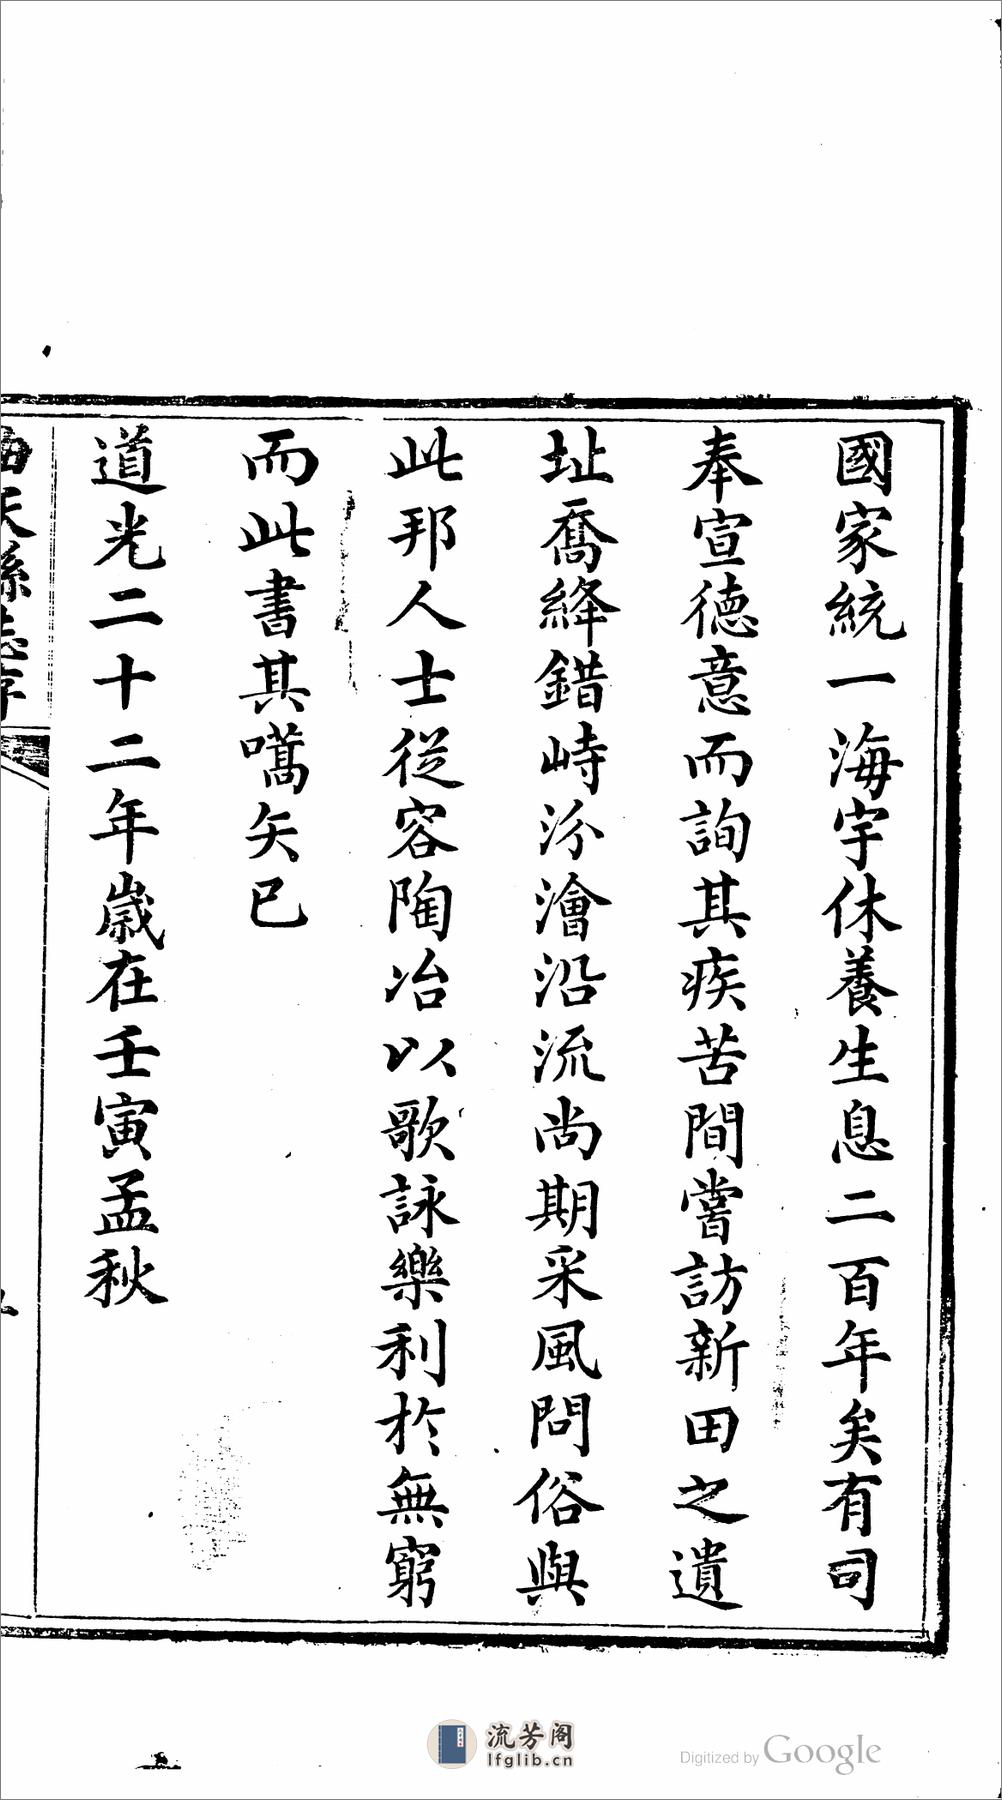 國家統一海宇休養生息二百年矣有司
奉宣德意而詢其疾苦間嘗訪新田之遺
址喬絳錯峙汾澮沿流尚期采風問俗與
此邦人士從容陶冶以歌詠樂利於無窮
而此書其嚆矢已
道光二十二年歲在壬寅孟秋
曲沃縣志序
流芳阁
lfglib.cn
Digitized by Google